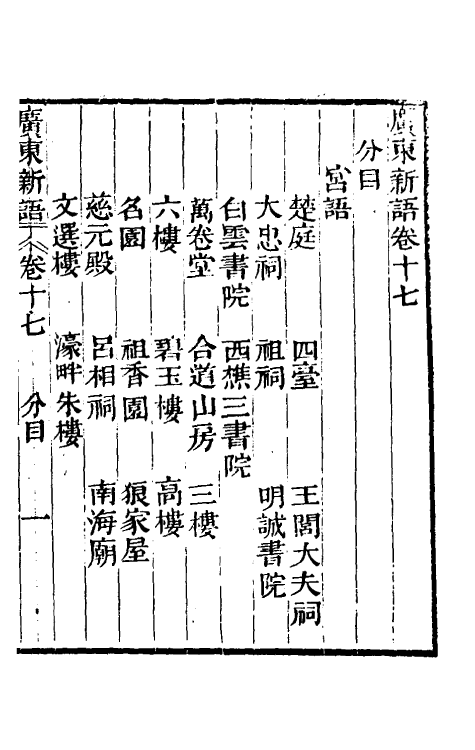 廣東新語卷十七
分目
宮語
楚庭 四臺 王閣大夫祠
大忠祠 祖祠 明誠書院
白雲書院 西樵三書院
萬卷堂 合道山房 三樓
六樓 碧玉樓 高樓
名園 祖香園 狼家屋
慈元殿 呂相祠 南海廟
文選樓 濠畔朱樓
廣東新語 卷十七 分目 一